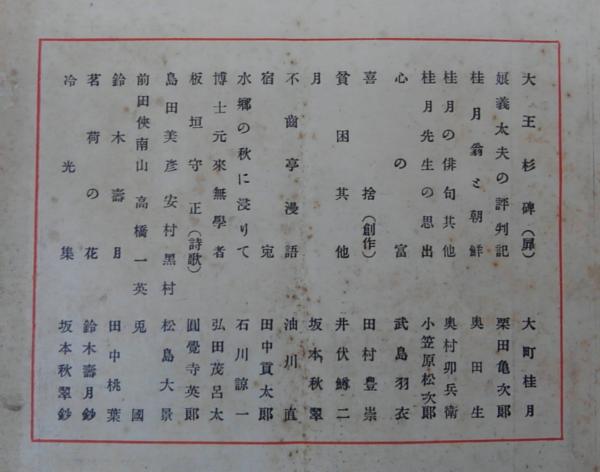 大王杉碑(扉) 大町桂月
娘義太夫の評判記 栗田亀次郎
桂月翁と朝鮮 奥田生
桂月の俳句其他 奥村卯兵衛
桂月先生の思出 小笠原松次郎
心の富 武島羽衣
喜捨(創作) 田村豊崇
貧困其他 井伏鱒二
月 坂本秋翠
不齒亭漫語 油川直
宿寃 田中貢太郎
水郷の秋に浸りて 石川諒一
博士元來無學者 弘田茂呂太
板垣守正(詩歌) 圓覺寺英郎
島田美彦 安村黒村 松島大景
前田俠南山 高橋一英 兎國
鈴木壽月 田中桃葉
茗荷の花 鈴木壽月鈔
冷光集 坂本秋翠鈔